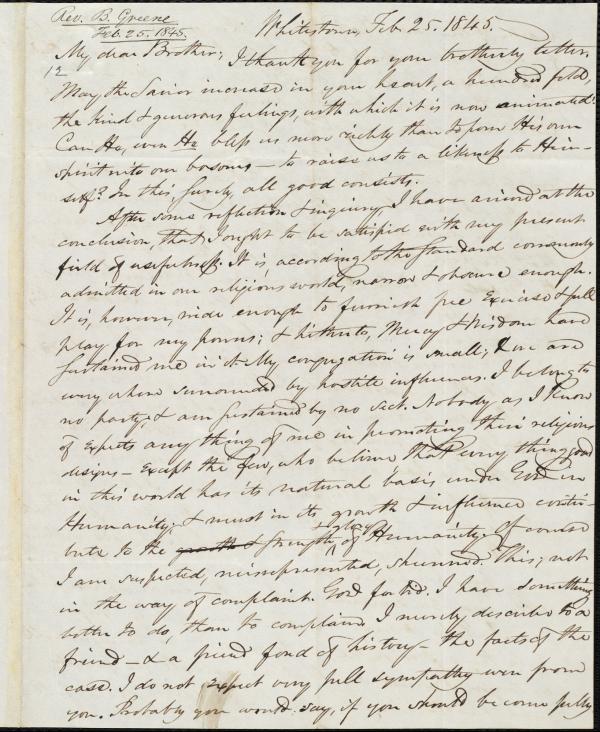 Rev. B. Greene
Feb. 25. 1845.
Whitestown, Feb. 25. 1845.
My dear Brother;
12
I thank you for your brotherly letter.
May the Savior increase in your heart, a hundred fold,
the kind & generous feelings, with which it is now animated.
Can He, even He bless us more richly than to pour His own
spirit into our bosoms — to raise us to a likeness to Him-
self? In this surely all good consists.
After some reflection & inquiry I have arrived at the
conclusion, that I ought to be satisfied with my present
field of usefulness. It is, according to the standard commonly
admitted in our religious world, narrow & obscure enough.
It is, however, wide enough to furnish free exercise & full
play for my powers; & hitherto, Mercy & Wisdom have
sustained me in it. My congregation is small; & we are
every where surrounded by hostile influences. I belong to
no party; & am sustained by no sect. Nobody as I know
of expects any thing of me in promoting their religious
designs — except the few, who believe that every thing good
in this world has its natural basis under God in
Humanity; & must in its growth & influence contri-
bute to the growth & strength & glory of Humanity. Of course
I am suspected, misrepresented, shunned. This, not
in the way of complaint. God forbid. I have something
better to do, than to complain. I merely describe to a
friend — & a friend fond of history — the facts of the
case. I do not expect very full sympathy even from
you. Probably you would say, if you should become fully